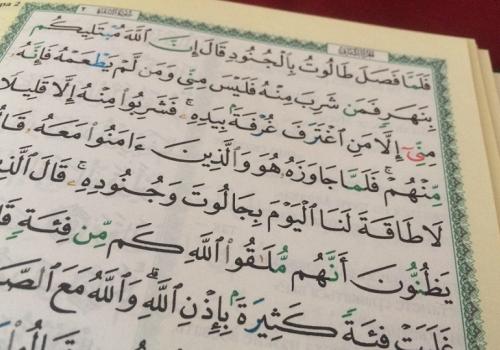 فَلَمَّا فَصَلَ طَالُوتُ بِٱلۡجُنُودِ قَالَ إِنَّ ٱللَّهَ مُبۡتَلِيكُم
بِنَهَرٖ فَمَن شَرِبَ مِنۡهُ فَلَيۡسَ مِنِّي وَمَن لَّمۡ يَطۡعَمۡهُ فَإِنَّهُۥ
مِنِّيٓ إِلَّا مَنِ ٱغۡتَرَفَ غُرۡفَةَۢ بِيَدِهِۦۚ فَشَرِبُواْ مِنۡهُ إِلَّا قَلِيلٗا
مِّنۡهُمۡۚ فَلَمَّا جَاوَزَهُۥ هُوَ وَٱلَّذِينَ ءَامَنُواْ مَعَهُۥ
لَا طَاقَةَ لَنَا ٱلۡيَوۡمَ بِجَالُوتَ وَجُنُودِهِۦۚ قَالَ
يَظُنُّونَ أَنَّهُم مُّلَٰقُواْ ٱللَّهِ كَم مِّن فِئَةٖ
غَلَبَتۡ فِئَةٗ كَثِيرَةَۢ بِإِذۡنِ ٱللَّهِۗ وَٱللَّهُ مَعَ